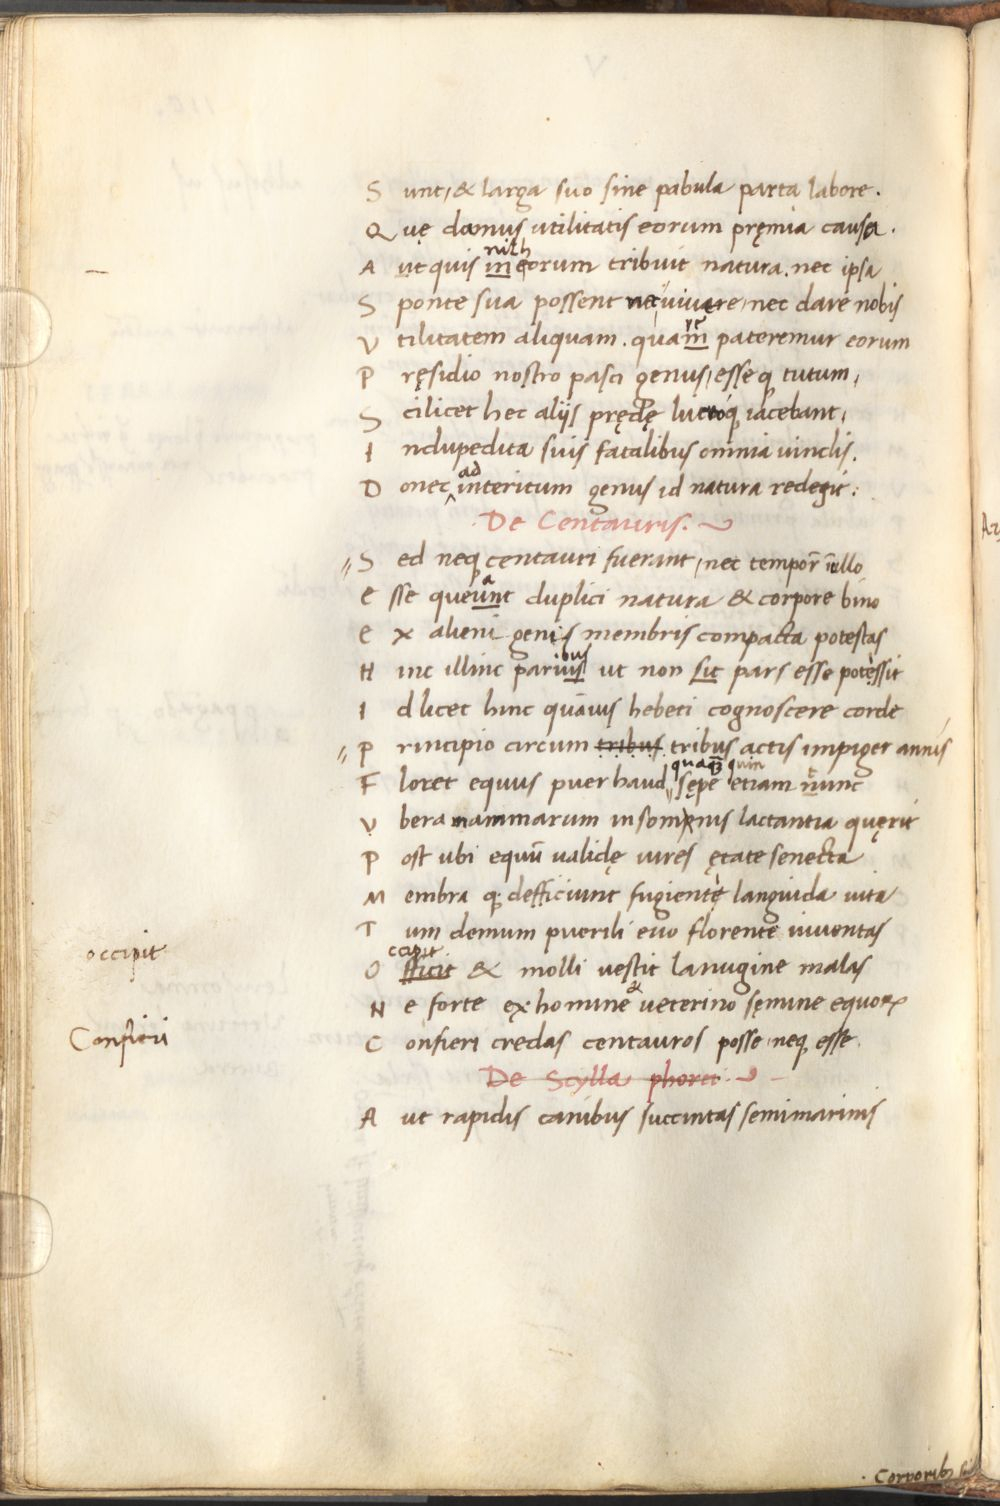 Sunt, & larga suo sine pabula parta labore.
Quę damus utilitatis eorum pręmia causa.
nith
Aut quis in eorum tribuit natura. nec ipsa
Sponte sua possent nec vivere, nec dare nobis
re
Vtilitatem aliquam. quam pateremur eorum
Pręsidio nostro pasci genus, esseq tutum,
Scilicet hec aliis prędę lucroq iacebant,
Indupedita suis fatalibus omnia vinclis.
ad
Donec interitum genus id natura redegit:
De Centauris.
Sed neq centauri fuerant, nec tempor̄ ullo
a
Esse queunt duplici natura & corpore bino
Ex alieni genis membris compacta potestas
ibus
Hinc illinc parius ut non sit pars esse potessit
Id licet hinc quāvis hebeti cognoscere corde
Principio circum tribus tribus actis impiger annis
quaq quin
Floret equus puer haud sępe etiam nunc
Vbera mammarum in somnis lactantia quęrit
Post ubi equū validę vires ętate senecta
Membra q: defficiunt fugientę languida vita
Tum demum puerili evo florente iuventas
occipit
ccipit
Officit & molli vestit lanugine malas
&
Ne forte ex homine veterino sęmine equoꝝ
Confieri
Confieri credas centauros posse, neq esse.
De Scylla phorci
Aut rapidis canibus succintas semimarinis
. Corporibs